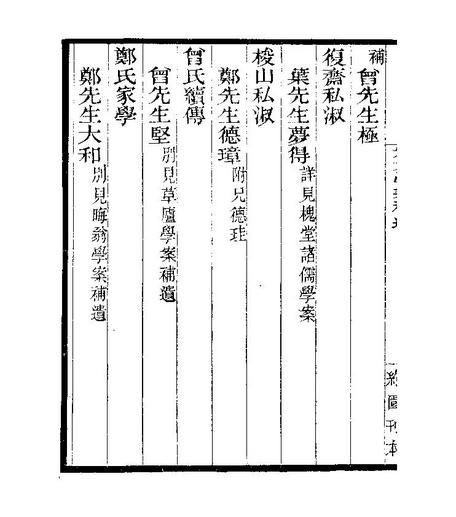 補曾先生極
復齋私淑
葉先生夢得詳見槐堂諸儒學案
梭山私淑
鄭先生德璋附兄德珪
曾氏續傳
曾先生堅別見草廬學案補遺
鄭氏家學
鄭先生大和別見晦翁學案補遺